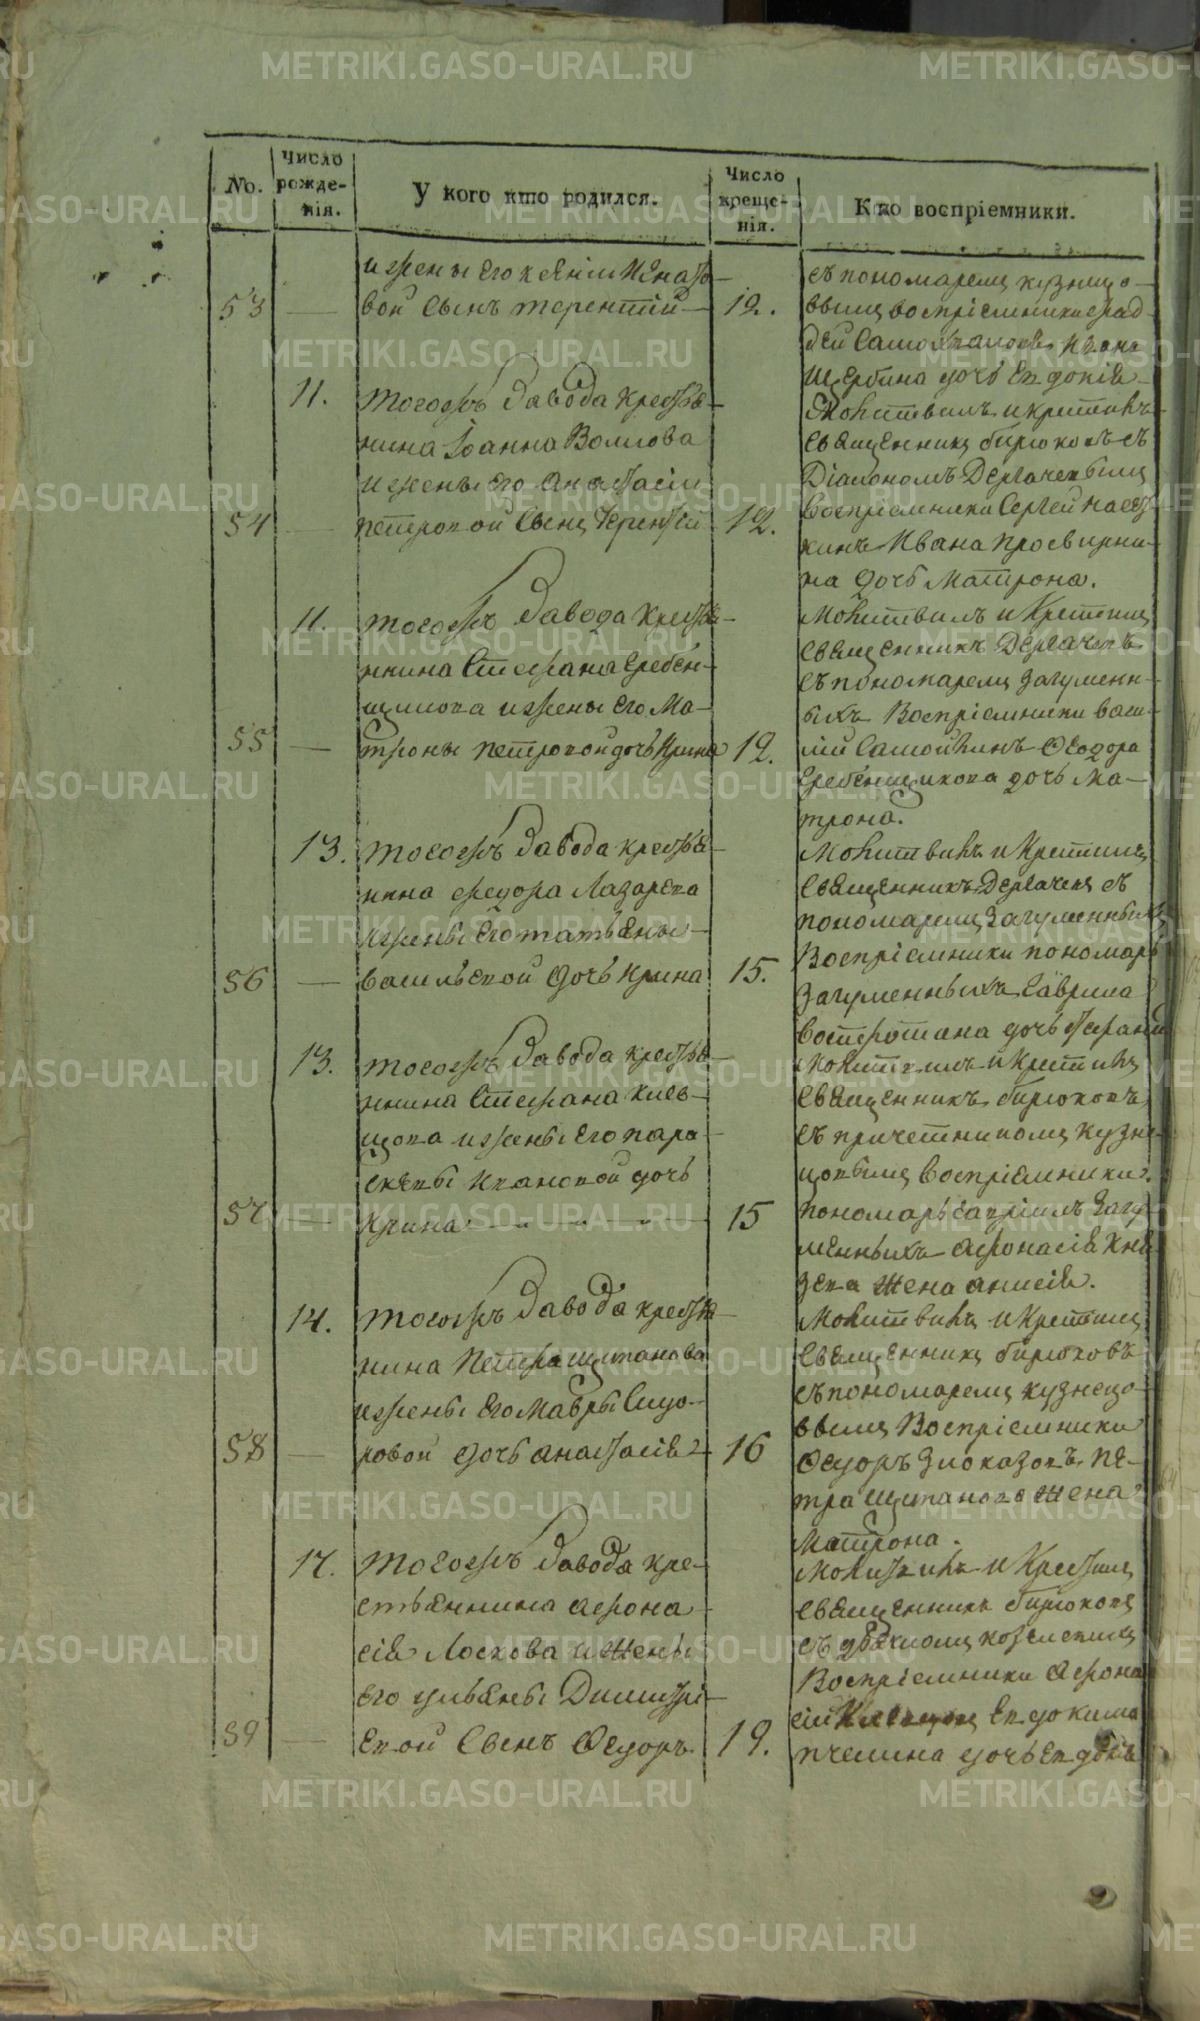 No.
Число рожденія.
У кого кто родился.
Число крещенія.
Кто воспріемники.
и жены его Ксеніи Игнать-
53 — вой сынъ Терентій — 12.
съ пономаремъ Кузнецо-
вымъ воспріемники
дочь Евдокія
11. тогожъ завода крестья-
нина Іоанна Волкова
и жены его Анастасіи
54 — Петровой сынъ Терентій 12.
Молитвилъ и крестилъ
священникъ Бирюковъ съ
Діакономъ Дергачевымъ
воспріемники Сергей
Ивана Просвирни-
на дочь Матрона.
11. тогожъ завода крестья-
нина Стефана Гребен-
щикова и жены его Ма-
55 — троны Петровой дочь Ирина 12.
Молитвилъ и Крестилъ
священникъ Дергачевъ
съ пономаремъ Загуменн-
ыхъ Воспріемники Васи-
лій Самойлинъ Феодора
Гребенщикова дочь Ма-
трона.
13. тогожъ завода крестья-
нина Федора Лазарева
и жены его Татьяны
56 — Васильевой дочь Ирина 15.
Молитвилъ и Крестилъ
священникъ Дергачевъ съ
пономаремъ Загуменныхъ
Воспріемники пономарь
Загуменныхъ Гаврила
дочь
13. тогожъ завода крестья-
нина Стефана Киев-
щова и жены его Пара-
скевы Ивановой дочь
57 — Ирина — 15
Молитвилъ и Крестилъ
священникъ Бирюковъ
съ причетникомъ Кузне-
цовымъ воспріемники
пономарь Гавріилъ Загу-
менныхъ Афонасія Кня-
зева жена Анисія.
14. тогожъ завода крестья-
нина Петра Щипанова
и жены его Мавры Сидо-
58 — ровой дочь Анастасія 16
Молитвилъ и Крестилъ
священникъ Бирюковъ
съ пономаремъ Кузнецо-
вымъ Воспріемники
Федоръ Злоказовъ Пе-
тра Щипанова жена
Матрона.
17. тогожъ завода кре-
стьянина Афона-
сія Лоскова и жены
его Ульяны Димитрі-
59 — евой сынъ Федоръ 19.
Молитвилъ и Крестилъ
священникъ Бирюковъ
съ дьячкомъ
Воспріемники Афона-
сій Евдокима
Пчелина дочь Евдокія
METRIKI.GASO-URAL.RU